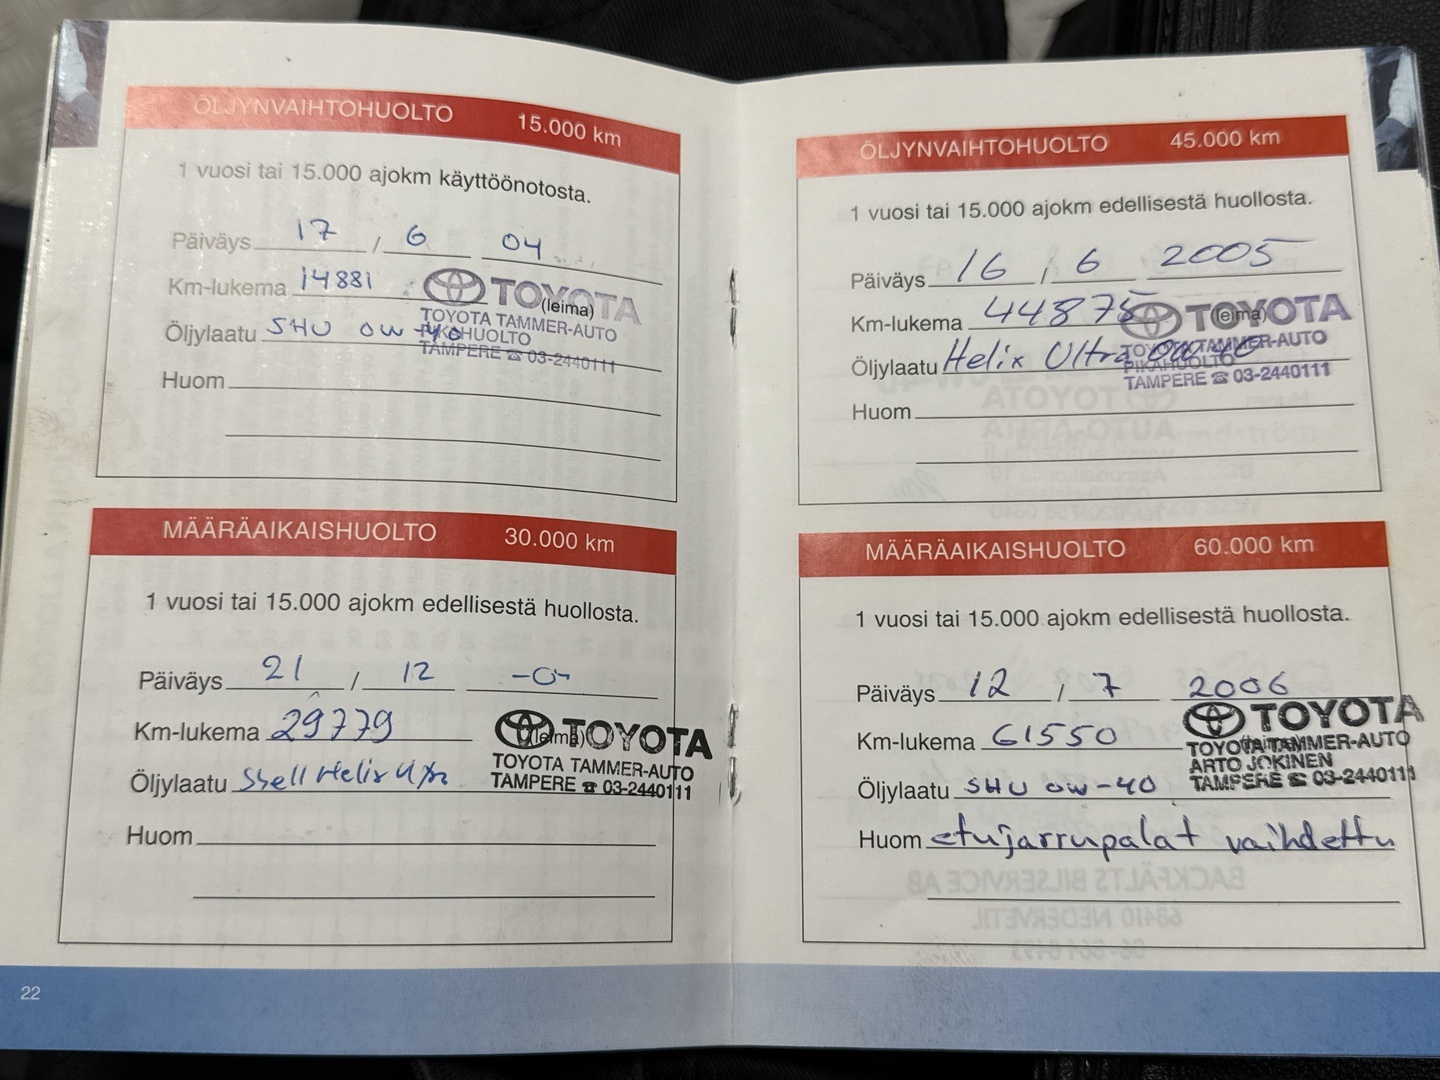 ÖLJYNVAIHTOHUOLTO 15.000 km
1 vuosi tai 15.000 ajokm käyttöönotosta.
Päiväys 17 / 6 04
Km-lukema 14881
Öljylaatu SHU 0W-40
(leima)
TOYOTA
TOYOTA TAMMER-AUTO
PIKAHUOLTO
TAMPERE ☎ 03-2440111
Huom
MÄÄRÄAIKAISHUOLTO 30.000 km
1 vuosi tai 15.000 ajokm edellisestä huollosta.
Päiväys 21 / 12 -04
Km-lukema 29779
Öljylaatu Shell Helix Ultra
(leima)
TOYOTA
TOYOTA TAMMER-AUTO
TAMPERE ☎ 03-2440111
Huom
22
ÖLJYNVAIHTOHUOLTO 45.000 km
1 vuosi tai 15.000 ajokm edellisestä huollosta.
Päiväys 16 / 6 2005
Km-lukema 44875
Öljylaatu Helix Ultra 0W-40
(leima)
TOYOTA
TOYOTA TAMMER-AUTO
PIKAHUOLTO
TAMPERE ☎ 03-2440111
Huom
MÄÄRÄAIKAISHUOLTO 60.000 km
1 vuosi tai 15.000 ajokm edellisestä huollosta.
Päiväys 12 / 7 2006
Km-lukema 61550
Öljylaatu SHU 0W-40
(leima)
TOYOTA
TOYOTA TAMMER-AUTO
ARTO JOKINEN
TAMPERE ☎ 03-2440111
Huom etujarrupalat vaihdettu